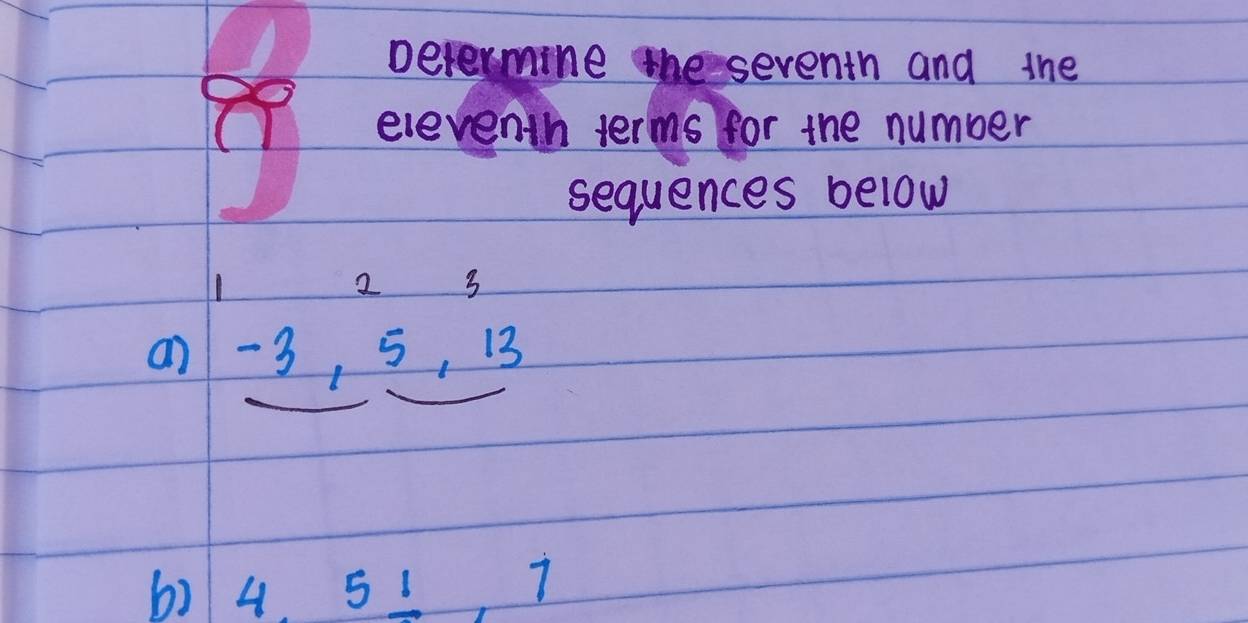 Determine the seventh and the
eleventh terms for the number
sequences below
1 2 3
a) -3 , 5 , 13
b) 4, 5 1 , 7